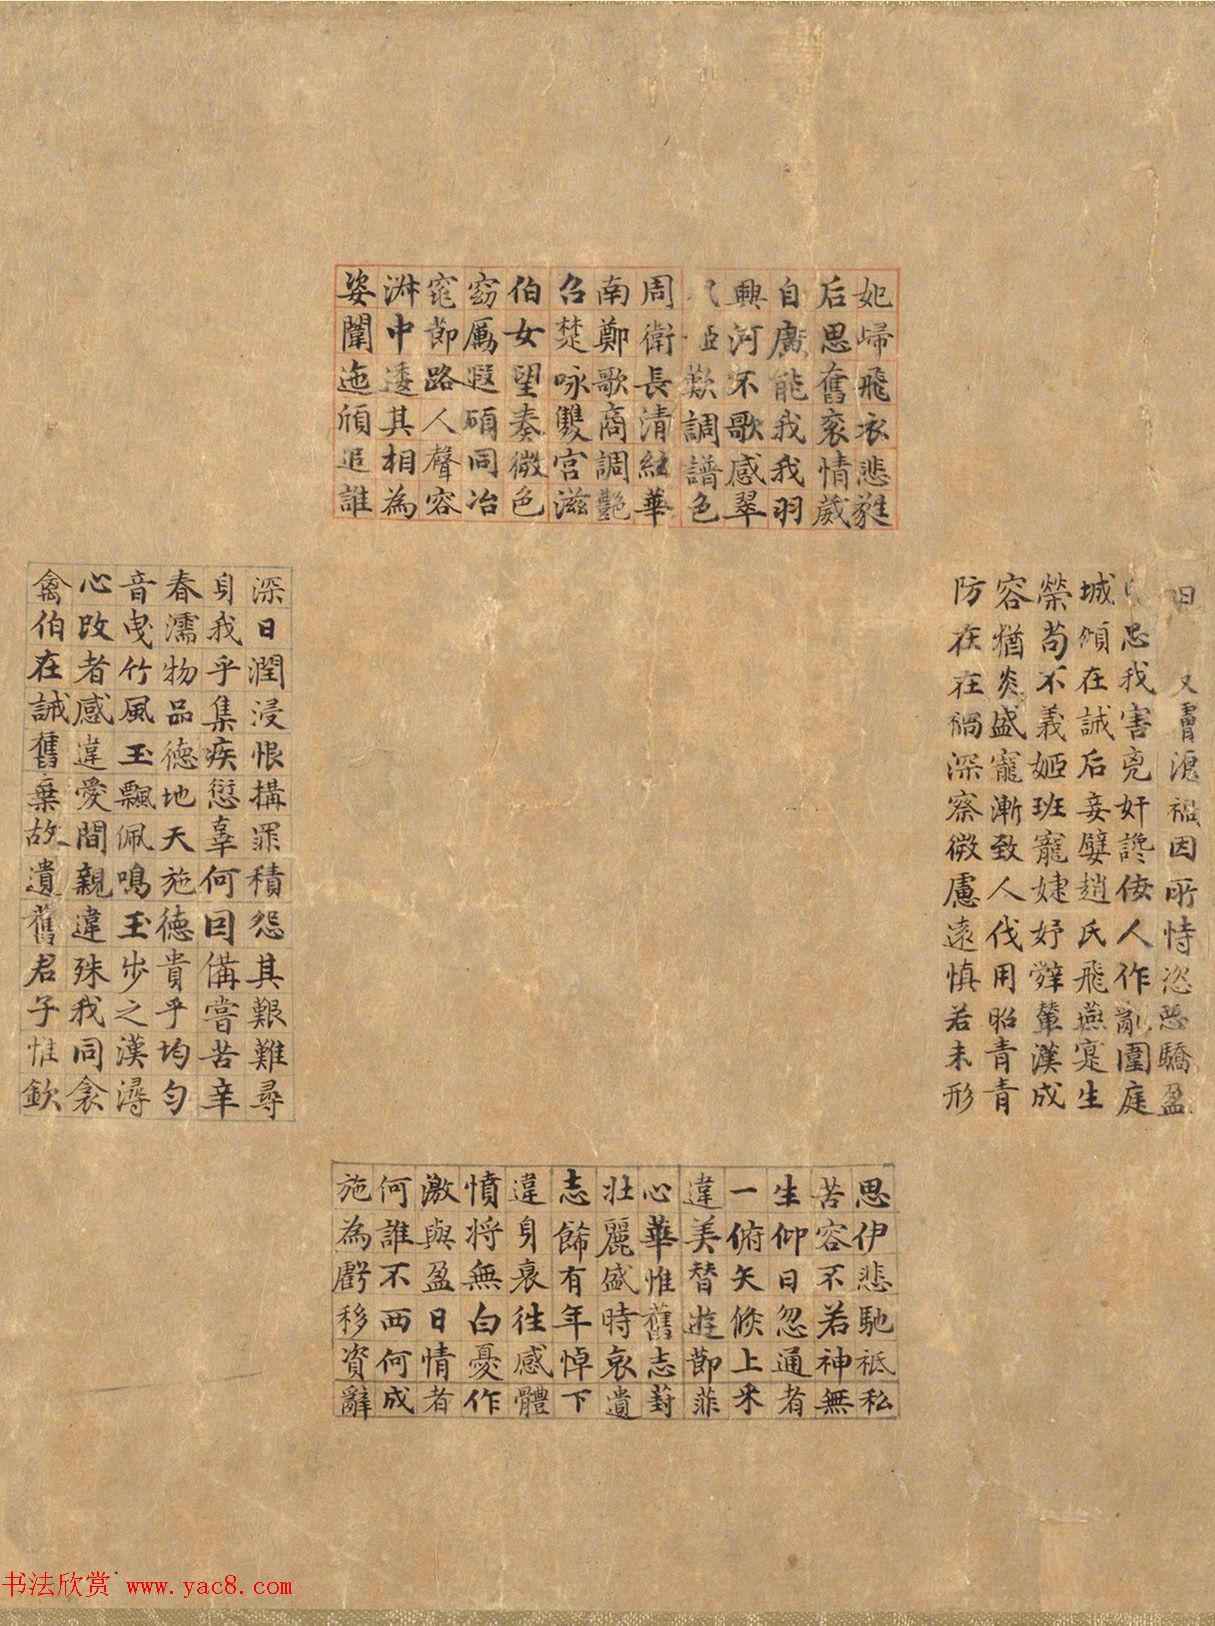 妃歸飛衣悲蕤
后思奮袞情葳
自廣能我我羽
興河不歌感翠
姬歎調譜色
周衛長清絃華
南鄭歌商調艷
召楚咏雙宮滋
伯女望奏微色
窈厲遐碩同冶
窕節路人聲容
淑中逶其相為
姿闈迤頎追誰
又膚禍因所恃恣驕盈
忠我害兇奸讒佞人作亂圍庭
城傾在誡后妾嬖趙氏飛燕寔生
榮苟不義姬班寵婕妤辤輦漢成
容猶炎盛寵漸致人伐用昭青青
防在在禍深察微慮遠慎若未形
深日潤浸恨搆罪積怨其艱難尋
身我乎集疾愆辜何因備嘗苦辛
春濡物品德地天施德貴乎均匀
音曳竹風玉飄佩鳴玉步之漢潯
心改者感違愛間親違殊我同衾
禽伯在誡舊棄故遺舊君子惟欽
思伊悲馳祗私
苦容不若神無
生仰日忽通者
一俯矢倏上采
違美替遊節菲
心華惟舊志葑
壯麗盛時哀遺
志餙有年悼下
違身衰往感體
憤將無白憂作
激與盈日情者
何誰不西何成
施為虧移資辭
书法欣赏 www.yac8.com